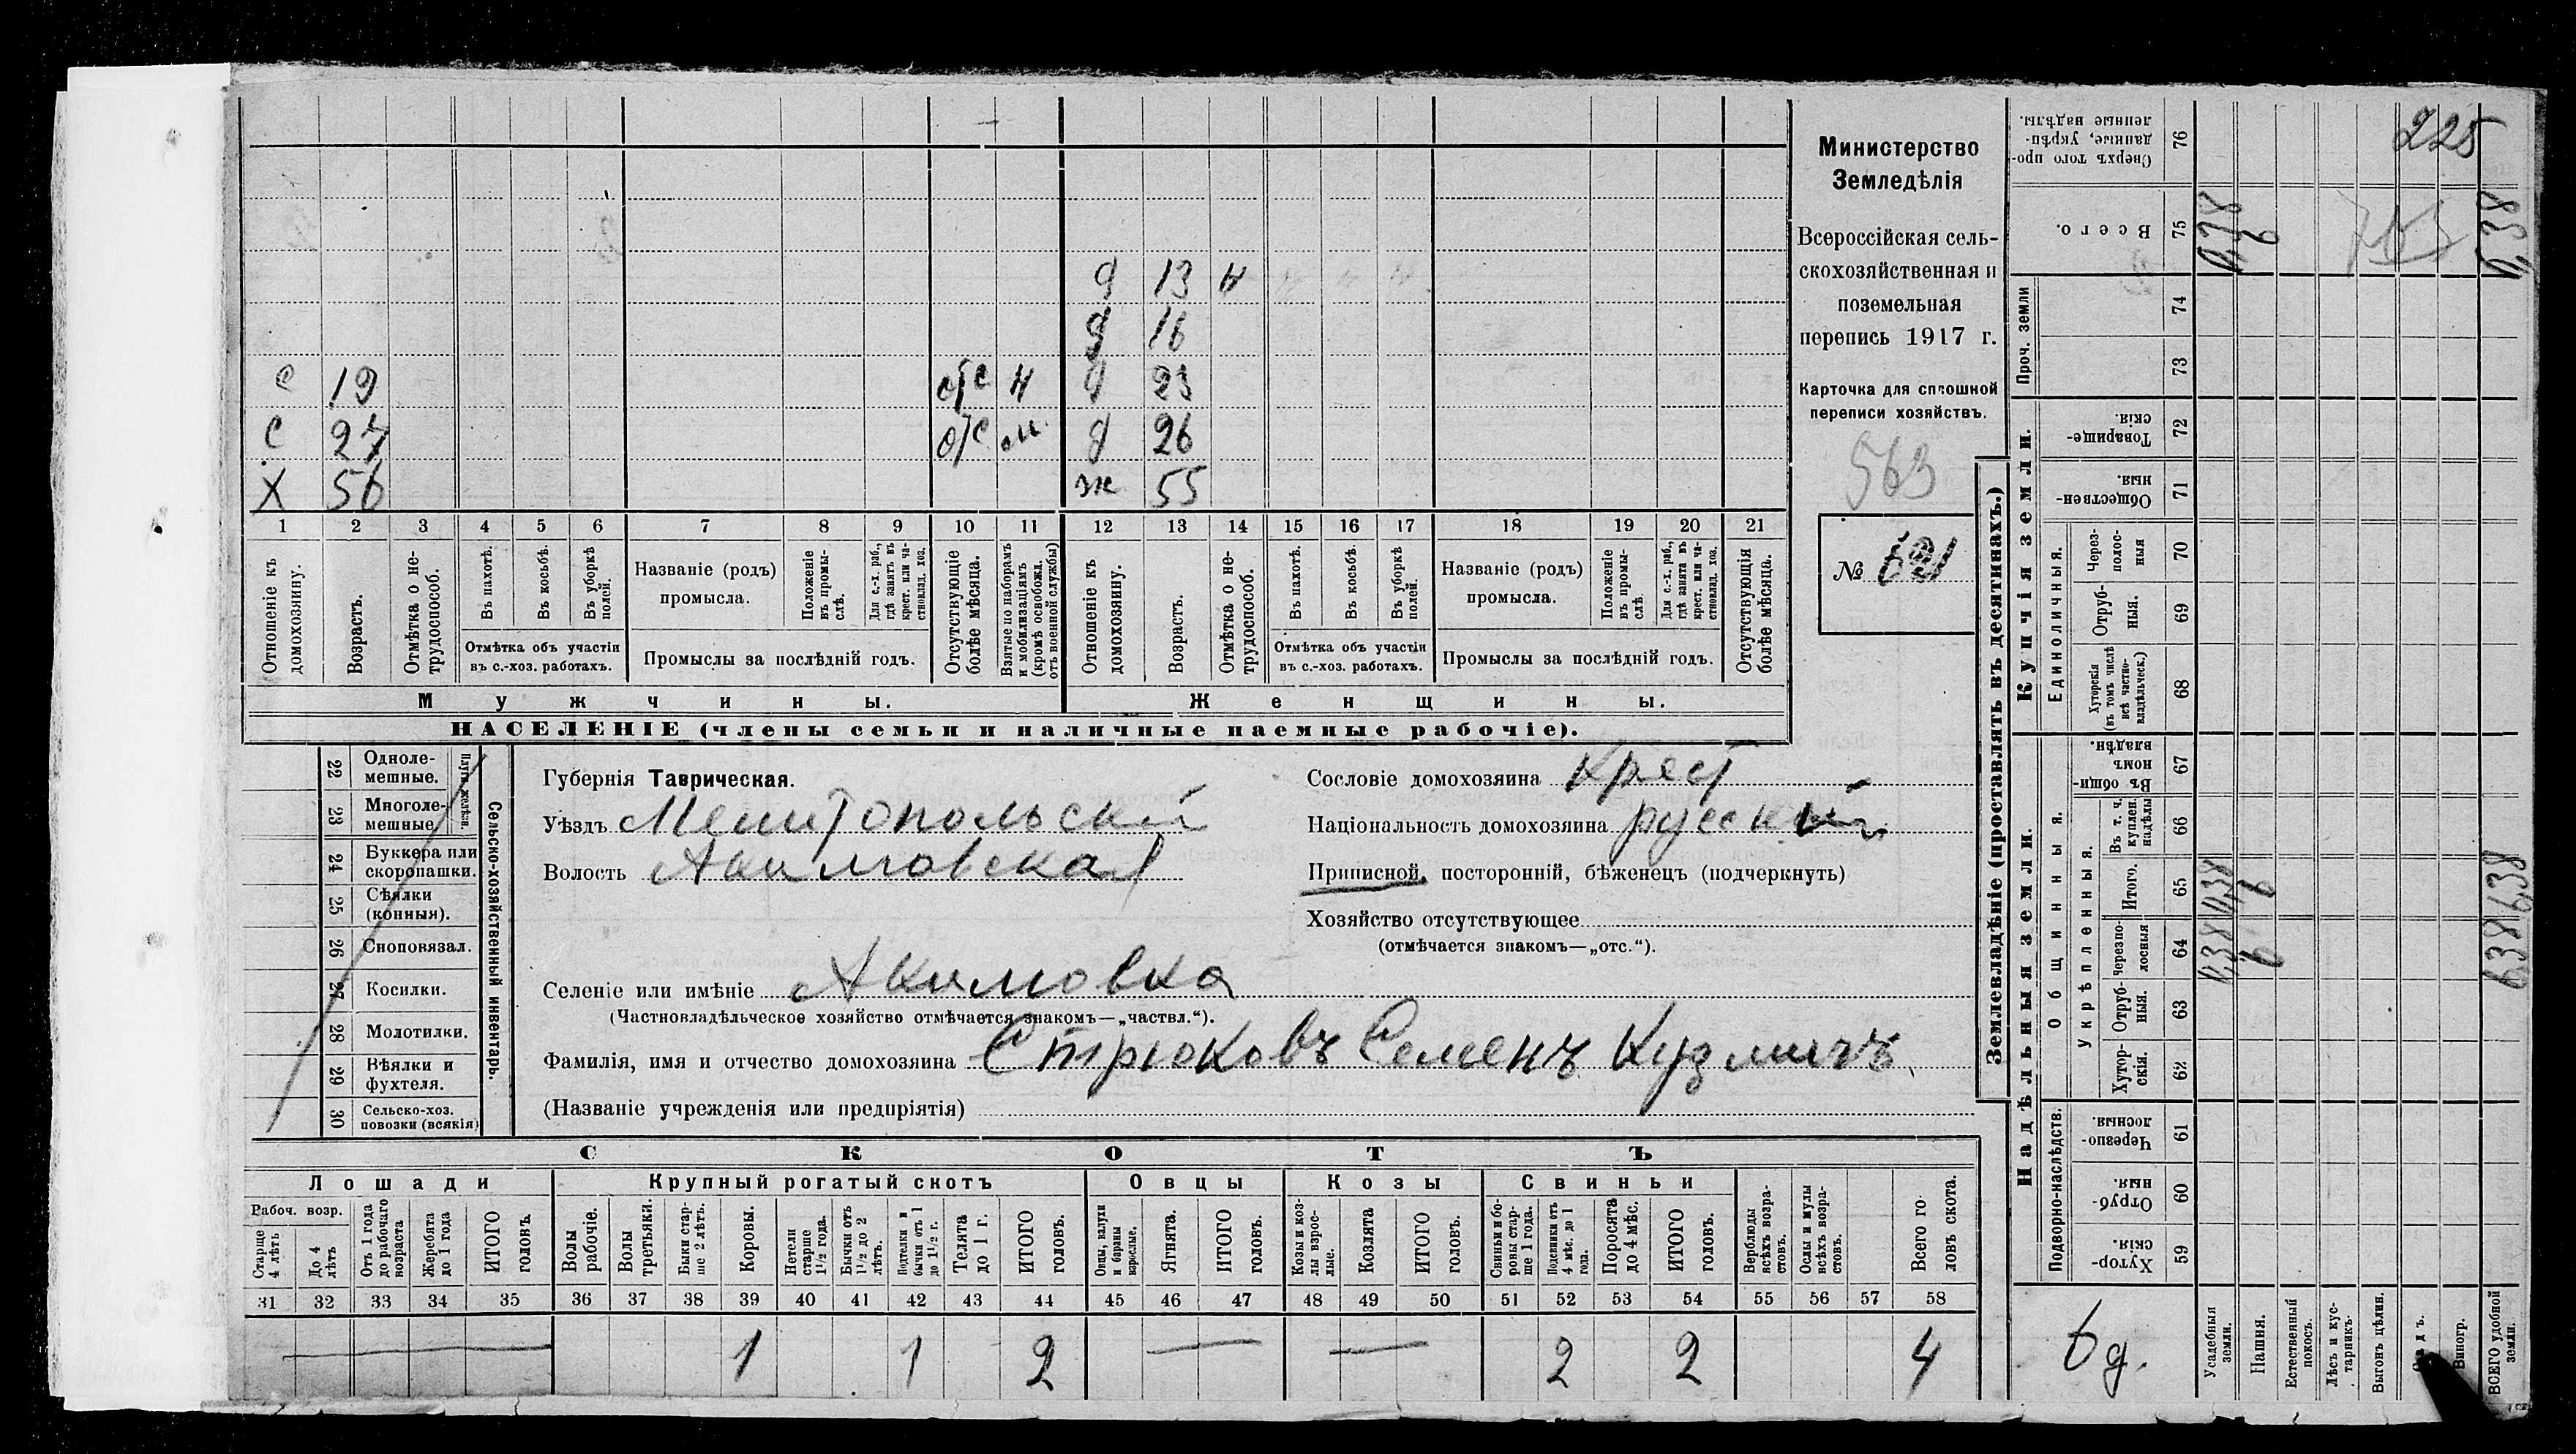 Министерство
Земледѣлія
Всероссійская сель-
скохозяйственная и
поземельная
перепись 1917 г.
Карточка для сплошной
переписи хозяйствъ.
563
№ 621
д 13 н
д 16
с 19 отс н д 23
с 27 отс м. д 26
Х 56 ж 55
1 2 3 4 5 6 7 8 9 10 11 12 13 14 15 16 17 18 19 20 21
Отношеніе къ домохозяину.
Возрастъ.
Отмѣтка о не-трудоспособ.
Въ пахотѣ.
Въ косьбѣ.
Въ уборкѣ полей.
Отмѣтка объ участіи въ с.-хоз. работахъ.
Названіе (родъ) промысла.
Положеніе въ промы-слѣ.
Для с.-х. раб., гдѣ занятъ въ крест. или ча-стновлад. хоз.
Промыслы за послѣдній годъ.
Отсутствующіе болѣе мѣсяца.
Взятые по наборамъ и мобилизаціямъ (кромѣ освобожд. отъ военной службы)
Отношеніе къ домохозяину.
Возрастъ.
Отмѣтка о не-трудоспособ.
Въ пахотѣ.
Въ косьбѣ.
Въ уборкѣ полей.
Отмѣтка объ участіи въ с.-хоз. работахъ.
Названіе (родъ) промысла.
Положеніе въ промы-слѣ.
Для с.-х. раб., гдѣ занята въ крест. или ча-стновлад. хоз.
Промыслы за послѣдній годъ.
Отсутствующія болѣе мѣсяца.
Мужчины. Женщины.
НАСЕЛЕНІЕ (члены семьи и наличные наемные рабочіе).
22 Одноле-мешные.
23 Многоле-мешные
24 Буккера или скоропашки.
25 Сѣялки (конныя).
26 Сноповязал.
27 Косилки.
28 Молотилки.
29 Вѣялки и фухтеля.
30 Сельско-хоз. повозки (всякія)
Сельско-хозяйственный инвентарь.
Губернія Таврическая.
Уѣздъ Мелитопольскій
Волость Акимовская
Сословіе домохозяина крест
Національность домохозяина русскій
Приписной, посторонній, бѣженецъ (подчеркнуть)
Хозяйство отсутствующее
(отмѣчается знакомъ—„отс.“).
Селеніе или имѣніе Акимовка
(Частновладѣльческое хозяйство отмѣчается знакомъ—„частвл.“).
Фамилія, имя и отчество домохозяина Стрюковъ Семенъ Кузмичъ
(Названіе учрежденія или предпріятія)
СКОТЪ
Лошади Крупный рогатый скотъ Овцы Козы Свиньи
Рабоч. возр.
Старше 4 лѣтъ
До 4 лѣтъ
Отъ 1 года до рабочаго возраста
Жеребята до 1 года
ИТОГО головъ.
Волы рабочіе.
Волы третьяки.
Быки стар-ше 2 лѣтъ.
Коровы.
Нетели старше 1½ года.
Бычки отъ 1½ до 2 лѣтъ.
Подтелки и бычки отъ 1 до 1½ г.
Телята до 1 г.
ИТОГО головъ.
Овцы, валухи и бараны взрослые.
Ягнята.
ИТОГО головъ.
Козы и коз-лы взрос-лые.
Козлята
ИТОГО головъ.
Свиньи и бо-ровы стар-ше 1 года.
Подсвинки отъ 4 мѣс. до 1 года.
Поросята до 4 мѣс.
ИТОГО головъ.
Верблюды всѣхъ возра-стовъ.
Ослы и мулы всѣхъ возра-стовъ.
Всего го-ловъ скота.
31 32 33 34 35 36 37 38 39 40 41 42 43 44 45 46 47 48 49 50 51 52 53 54 55 56 57 58
1 1 2 2 2 4
Землевладѣніе (проставлять въ десятинахъ.)
Надѣльныя земли. Купчія земли. Проч. земли
Подворно-наслѣдств.
Общинныя.
Укрѣпленныя.
Единоличныя.
59 Хутор-скія.
60 Отруб-ныя.
61 Черезпо-лосныя.
62 Хутор-скія.
63 Отруб-ныя.
64 Черезпо-лосныя
65 Итого.
66 Въ т. ч. куплен. надѣлы
67 Въ общи-номъ владѣн.
68 Хуторскія (въ томъ числѣ всѣ частно-владѣльческ.)
69 Отруб-ныя.
70 Через-полос-ныя
71 Обществен-ныя.
72 Товарище-скія.
73
74
75 Всего.
76 Сверхъ того про-данные, укрѣп-ленные надѣлы.
6 д.
Усадебныя земли. 0,38 0,38 0,38
Пашня. 6 6 6
Естественный покосъ.
Лѣсъ и кус-тарникъ.
Выгонъ цѣлин.
Виногр.
ВСЕГО удобной земли. 6,38 6,38 6,38
225